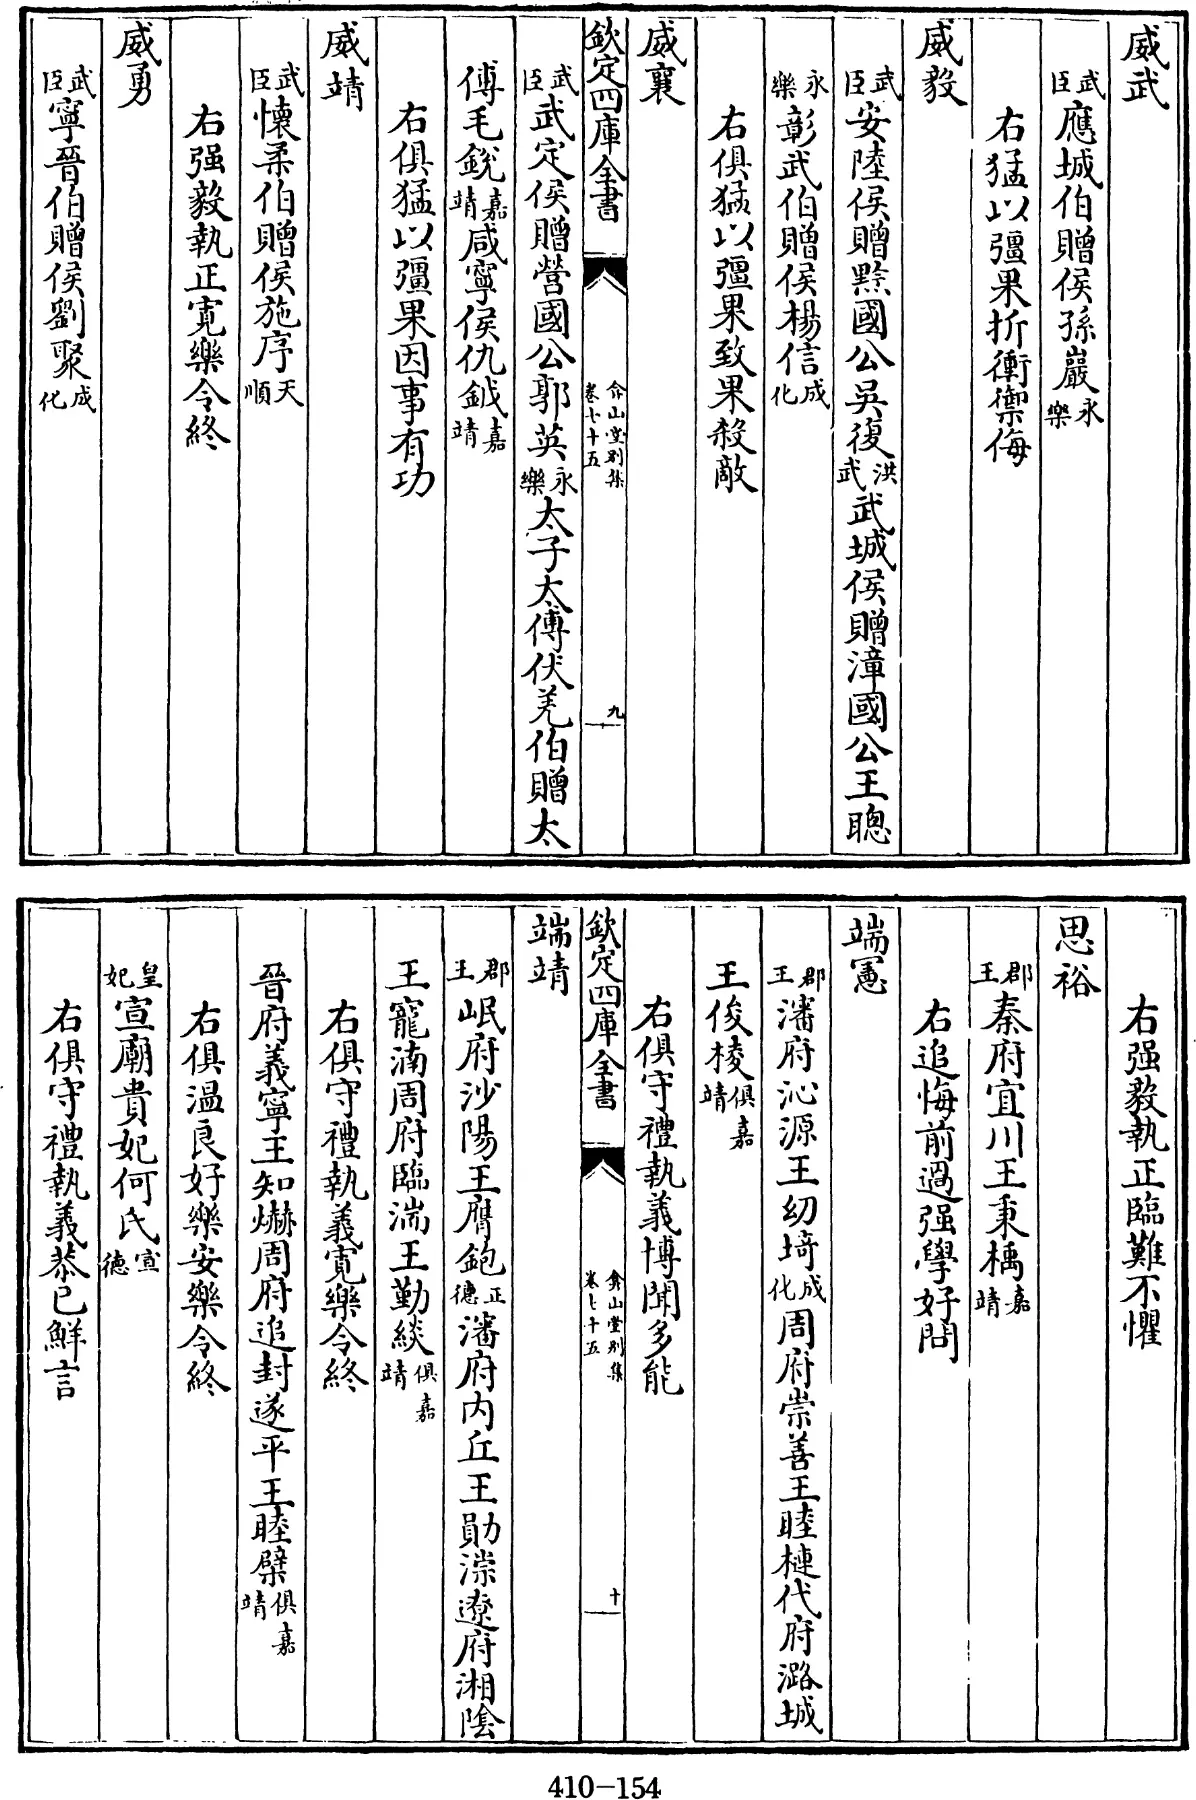 威武
武臣應城伯贈侯孫巖永樂
右猛以彊果折衝禦侮
威毅
武臣安陸侯贈黔國公吳復洪武武城侯贈漳國公王聰
永樂彰武伯贈侯楊信成化
右俱猛以彊果致果殺敵
威襄
欽定四庫全書
弇山堂別集
卷七十五
九
武臣武定侯贈營國公郭英永樂太子太傅伏羌伯贈太
傅毛銳嘉靖咸寧侯仇鉞嘉靖
右俱猛以彊果因事有功
威靖
武臣懷柔伯贈侯施序天順
右强毅執正寬樂令終
威勇
武臣寧晉伯贈侯劉聚成化
右强毅執正臨難不懼
思裕
郡王秦府宜川王秉楀嘉靖
右追悔前過强學好問
端憲
郡王瀋府沁源王幼𡊮成化周府崇善王睦㮕代府潞城
王俊棱俱嘉靖
右俱守禮執義博聞多能
欽定四庫全書
弇山堂別集
卷七十五
十
端靖
郡王岷府沙陽王膺鉋正德瀋府内丘王勛漴遼府湘陰
王寵湳周府臨湍王勤緂俱嘉靖
右俱守禮執義寬樂令終
晉府義寧王知㷎周府追封遂平王睦㯤俱嘉靖
右俱温良好樂安樂令終
皇妃宣廟貴妃何氏宣德
右俱守禮執義恭已鮮言
410-154